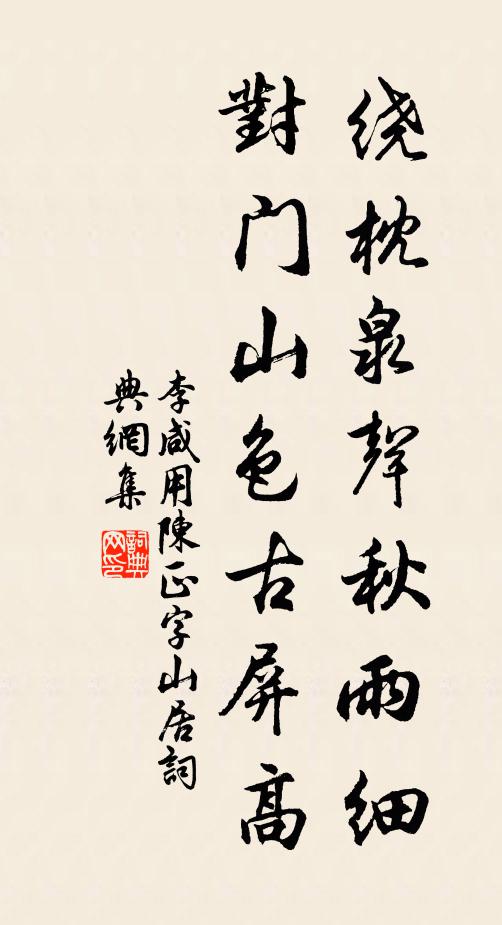 绕枕泉聲秋雨細
對门山色古屏高
李咸用陳正字山居詞
典網集
詞典网印